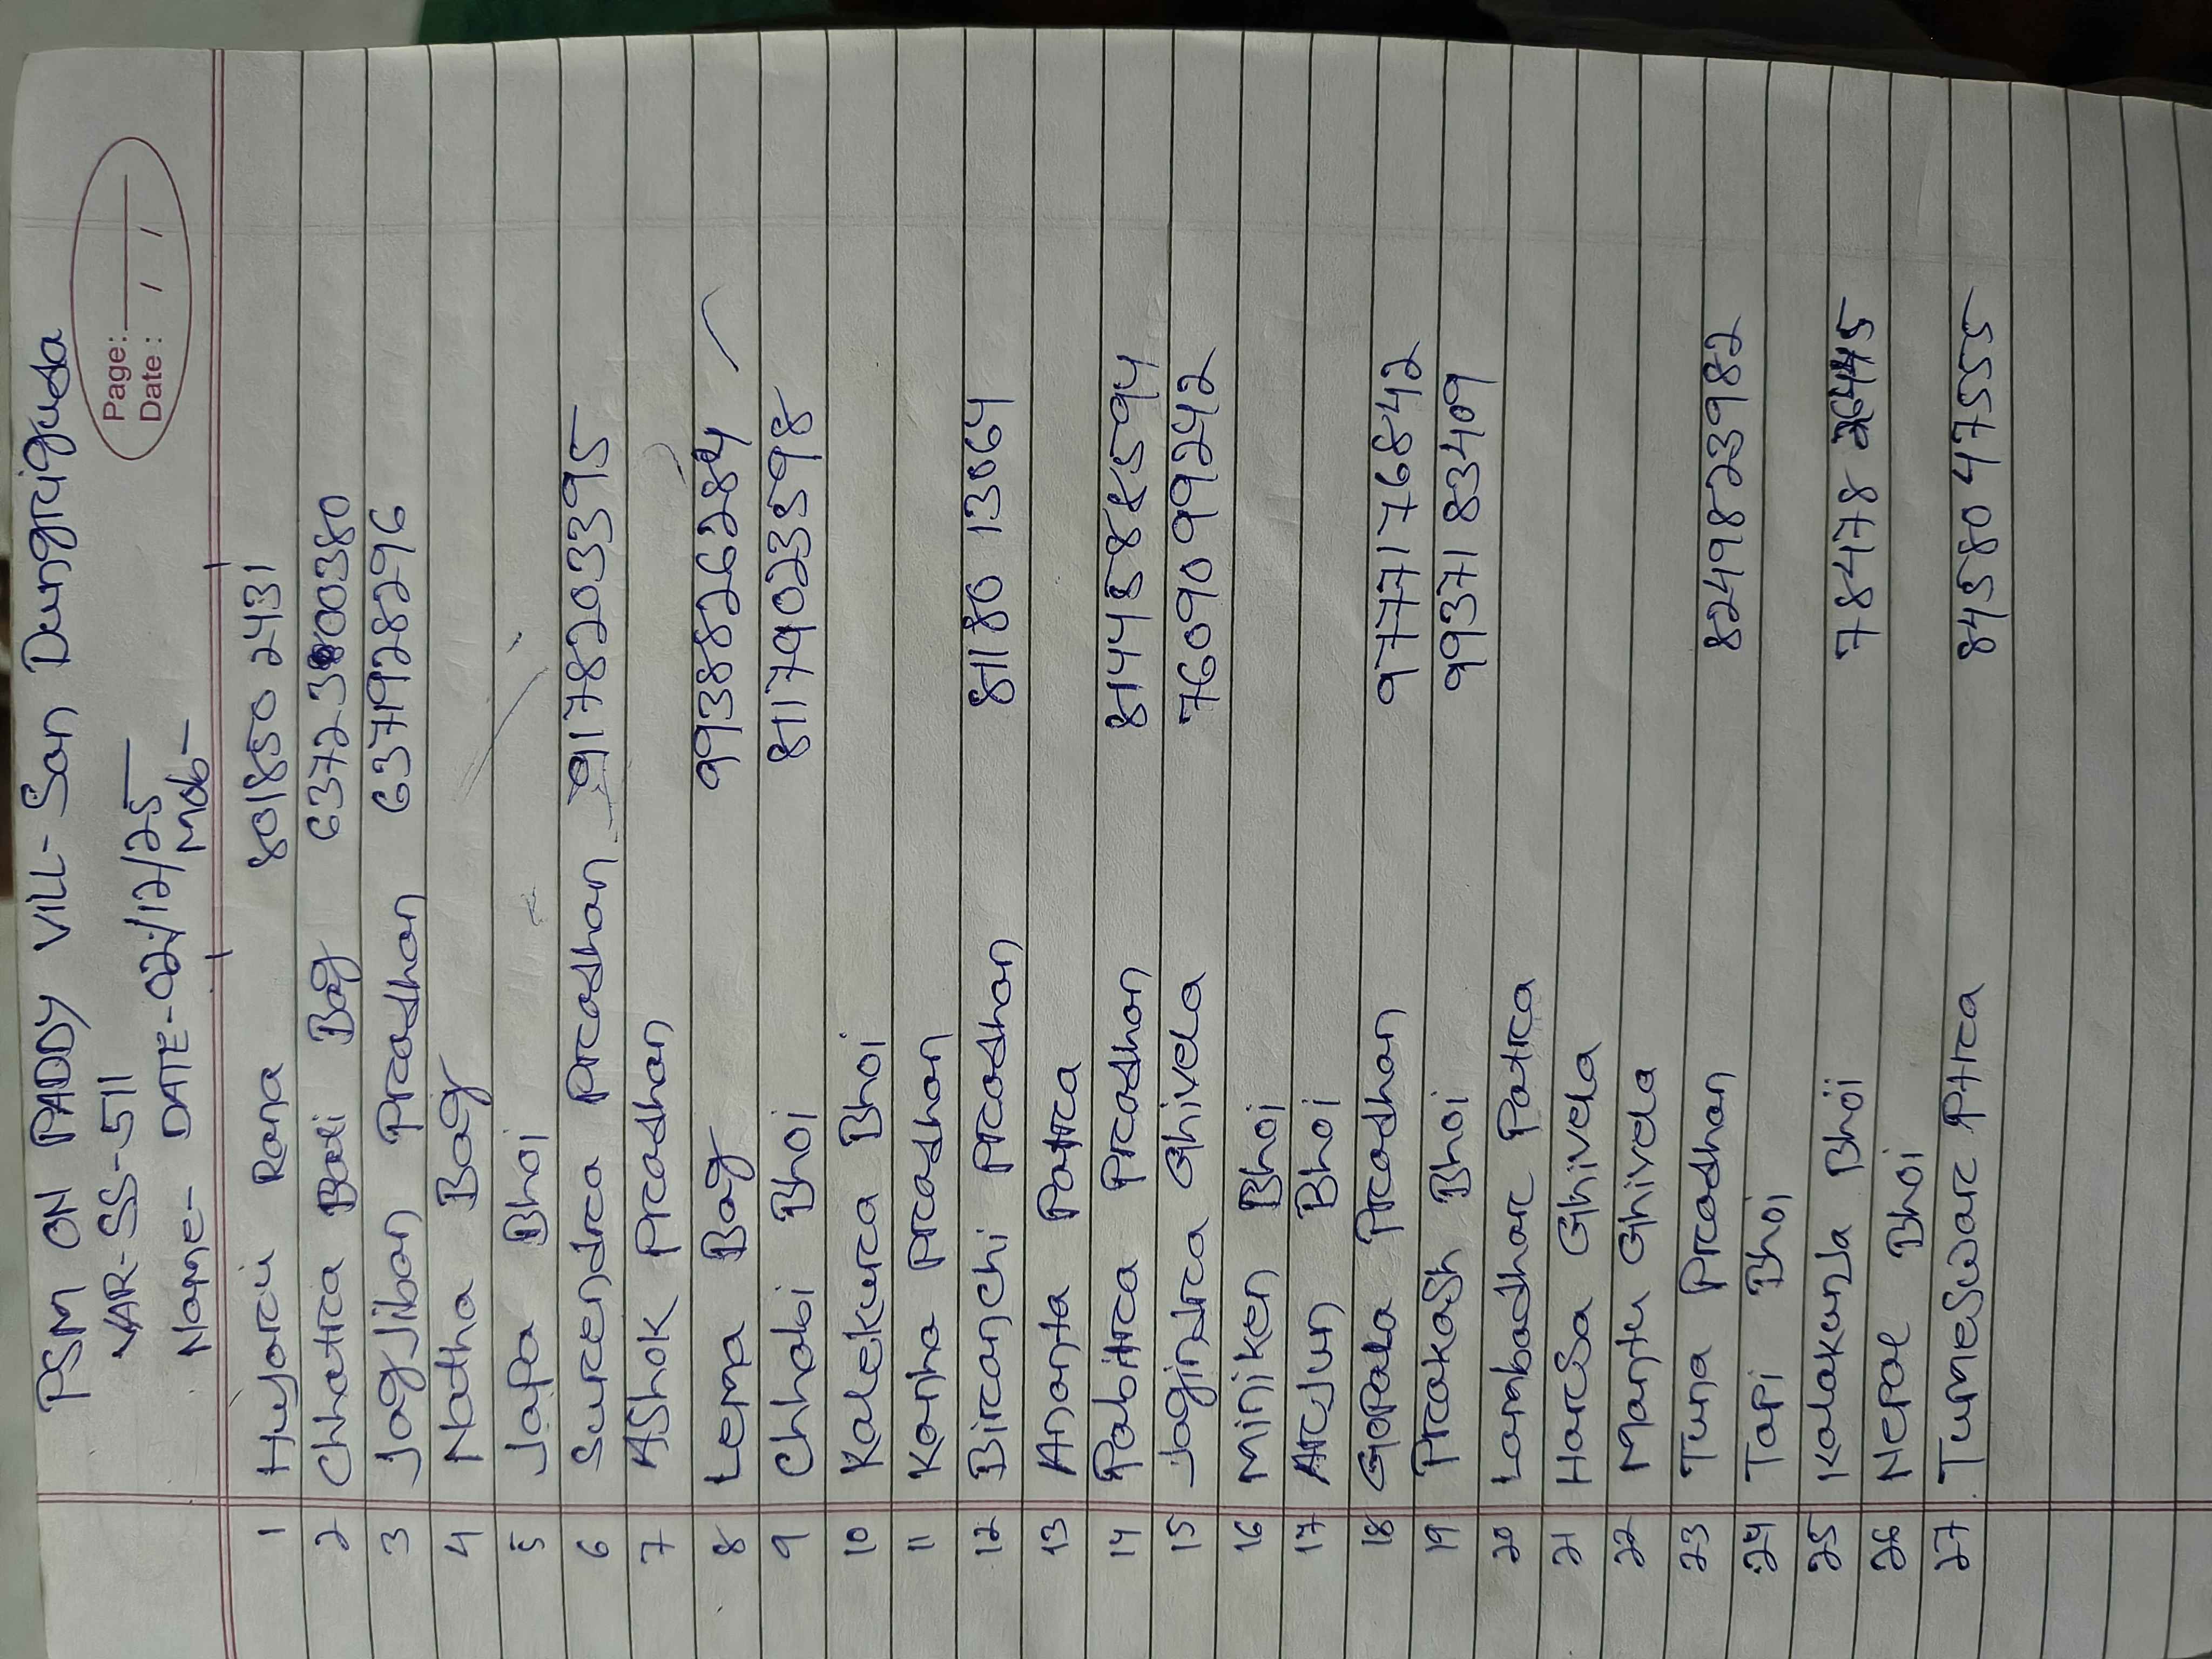 PSM ON PADDY VILL- San Dungriguda
VAR-SS-511
Page:
Date: / /
Name- DATE-02/12/25 Mob-
1 Hujarcii Rana 801850 2431
2 Chhatrca Badi Bag 6372380 0380
3 JagJiban Prcadhan 6371928296
4 Natha Bag
5 Japa Bhoi
6 Surcendrca Prcadhan 9178203395
7 AShok Prcadhan
8 Lema Bag 9938826284
9 Chhabi Bhoi 81179023598
10 Kalekurca Bhoi
11 Kanha Prcadhan
12 Bircanchi Prcadhan 81180 13064
13 Ananta Patrca
14 Pabitrca Prcadhan 8144588594
15 Jagindrca Ghivela 76090 99242
16 Miniken Bhoi
17 ArcJun Bhoi
18 Gopala Prcadhan 97771 76842
19 PrcakaSh Bhoi 99371 83409
20 Lambadharc Patrca
21 HarcSa Ghivela
22 Mantu Ghivela
23 Tuna Prcadhan 8249823982
24 Tapi Bhoi
25 Kalakanda Bhoi 78478
26 Nepal Bhoi
27 TumeSwarc Ptrca 84580 47555